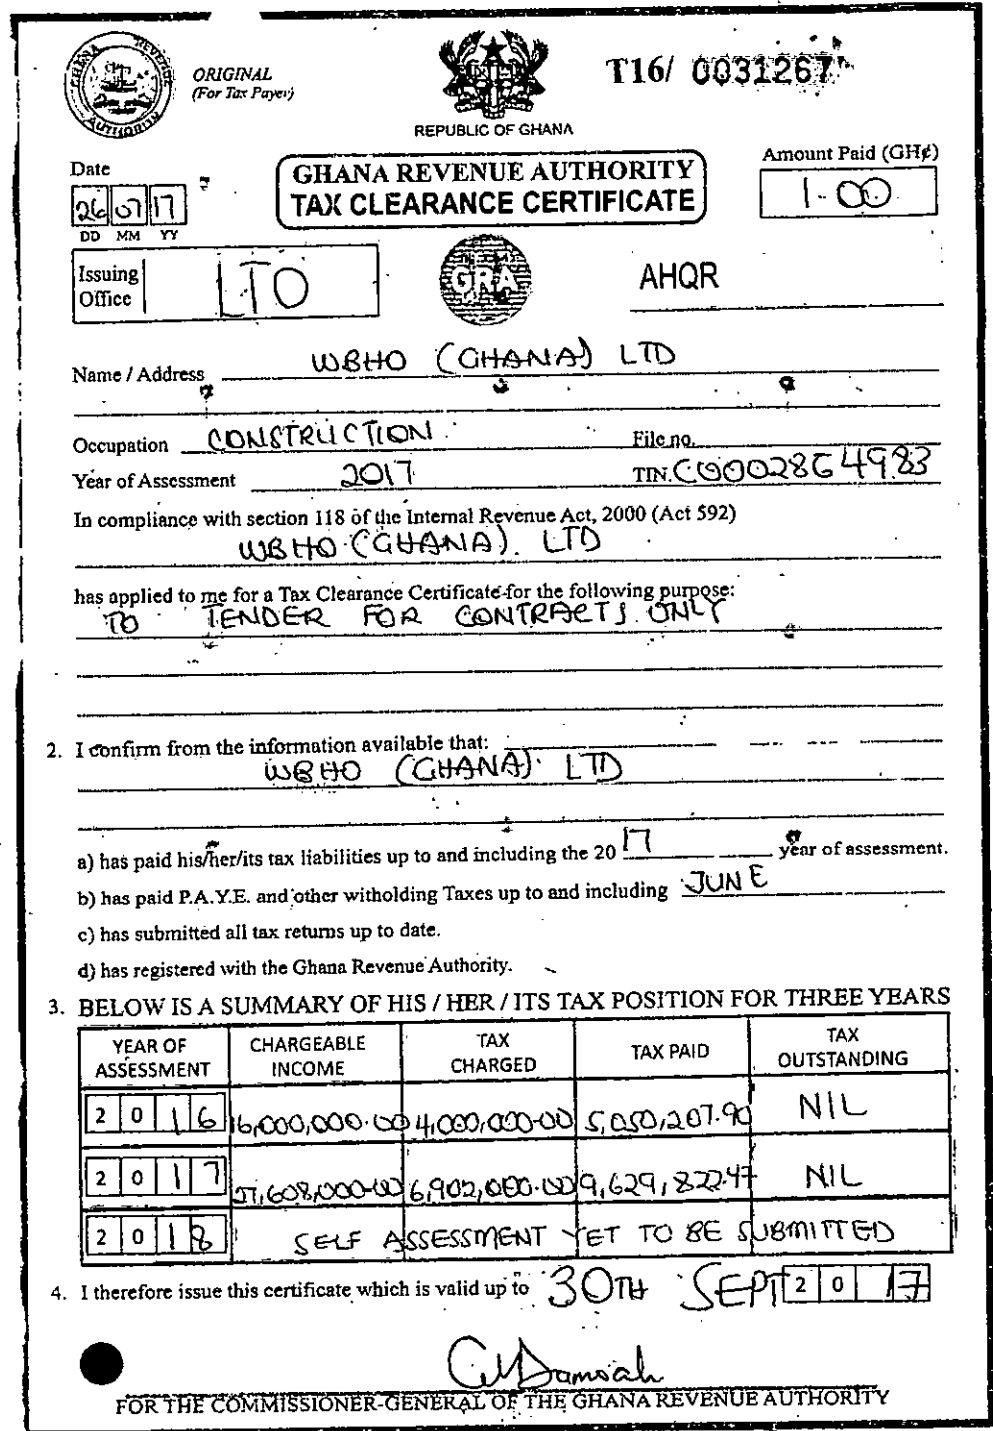 GHANA REVENUE
AUTHORITY
ORIGINAL
(For Tax Payer)
REPUBLIC OF GHANA
T16/ 0031267
Date
26 07 17
DD MM YY
GHANA REVENUE AUTHORITY
TAX CLEARANCE CERTIFICATE
Amount Paid (GH¢)
1.00
Issuing Office
LTO
GRA
AHQR
Name / Address WBHO (GHANA) LTD
Occupation CONSTRUCTION File no.
Year of Assessment 2017 TIN.
In compliance with section 118 of the Internal Revenue Act, 2000 (Act 592)
WBHO (GHANA) LTD
has applied to me for a Tax Clearance Certificate for the following purpose:
TO TENDER FOR CONTRACTS ONLY
2. I confirm from the information available that:
WBHO (GHANA) LTD
a) has paid his/her/its tax liabilities up to and including the 20 17 year of assessment.
b) has paid P.A.Y.E. and other witholding Taxes up to and including JUNE
c) has submitted all tax returns up to date.
d) has registered with the Ghana Revenue Authority.
3. BELOW IS A SUMMARY OF HIS / HER / ITS TAX POSITION FOR THREE YEARS
YEAR OF ASSESSMENT CHARGEABLE INCOME TAX CHARGED TAX PAID TAX OUTSTANDING
2016 16,000,000.00 4,000,000.00 5,050,207.90 NIL
2017 6,902,000.00 9,629,822.47 NIL
2018 SELF ASSESSMENT YET TO BE SUBMITTED
4. I therefore issue this certificate which is valid up to 30TH SEPT 2017
FOR THE COMMISSIONER-GENERAL OF THE GHANA REVENUE AUTHORITY